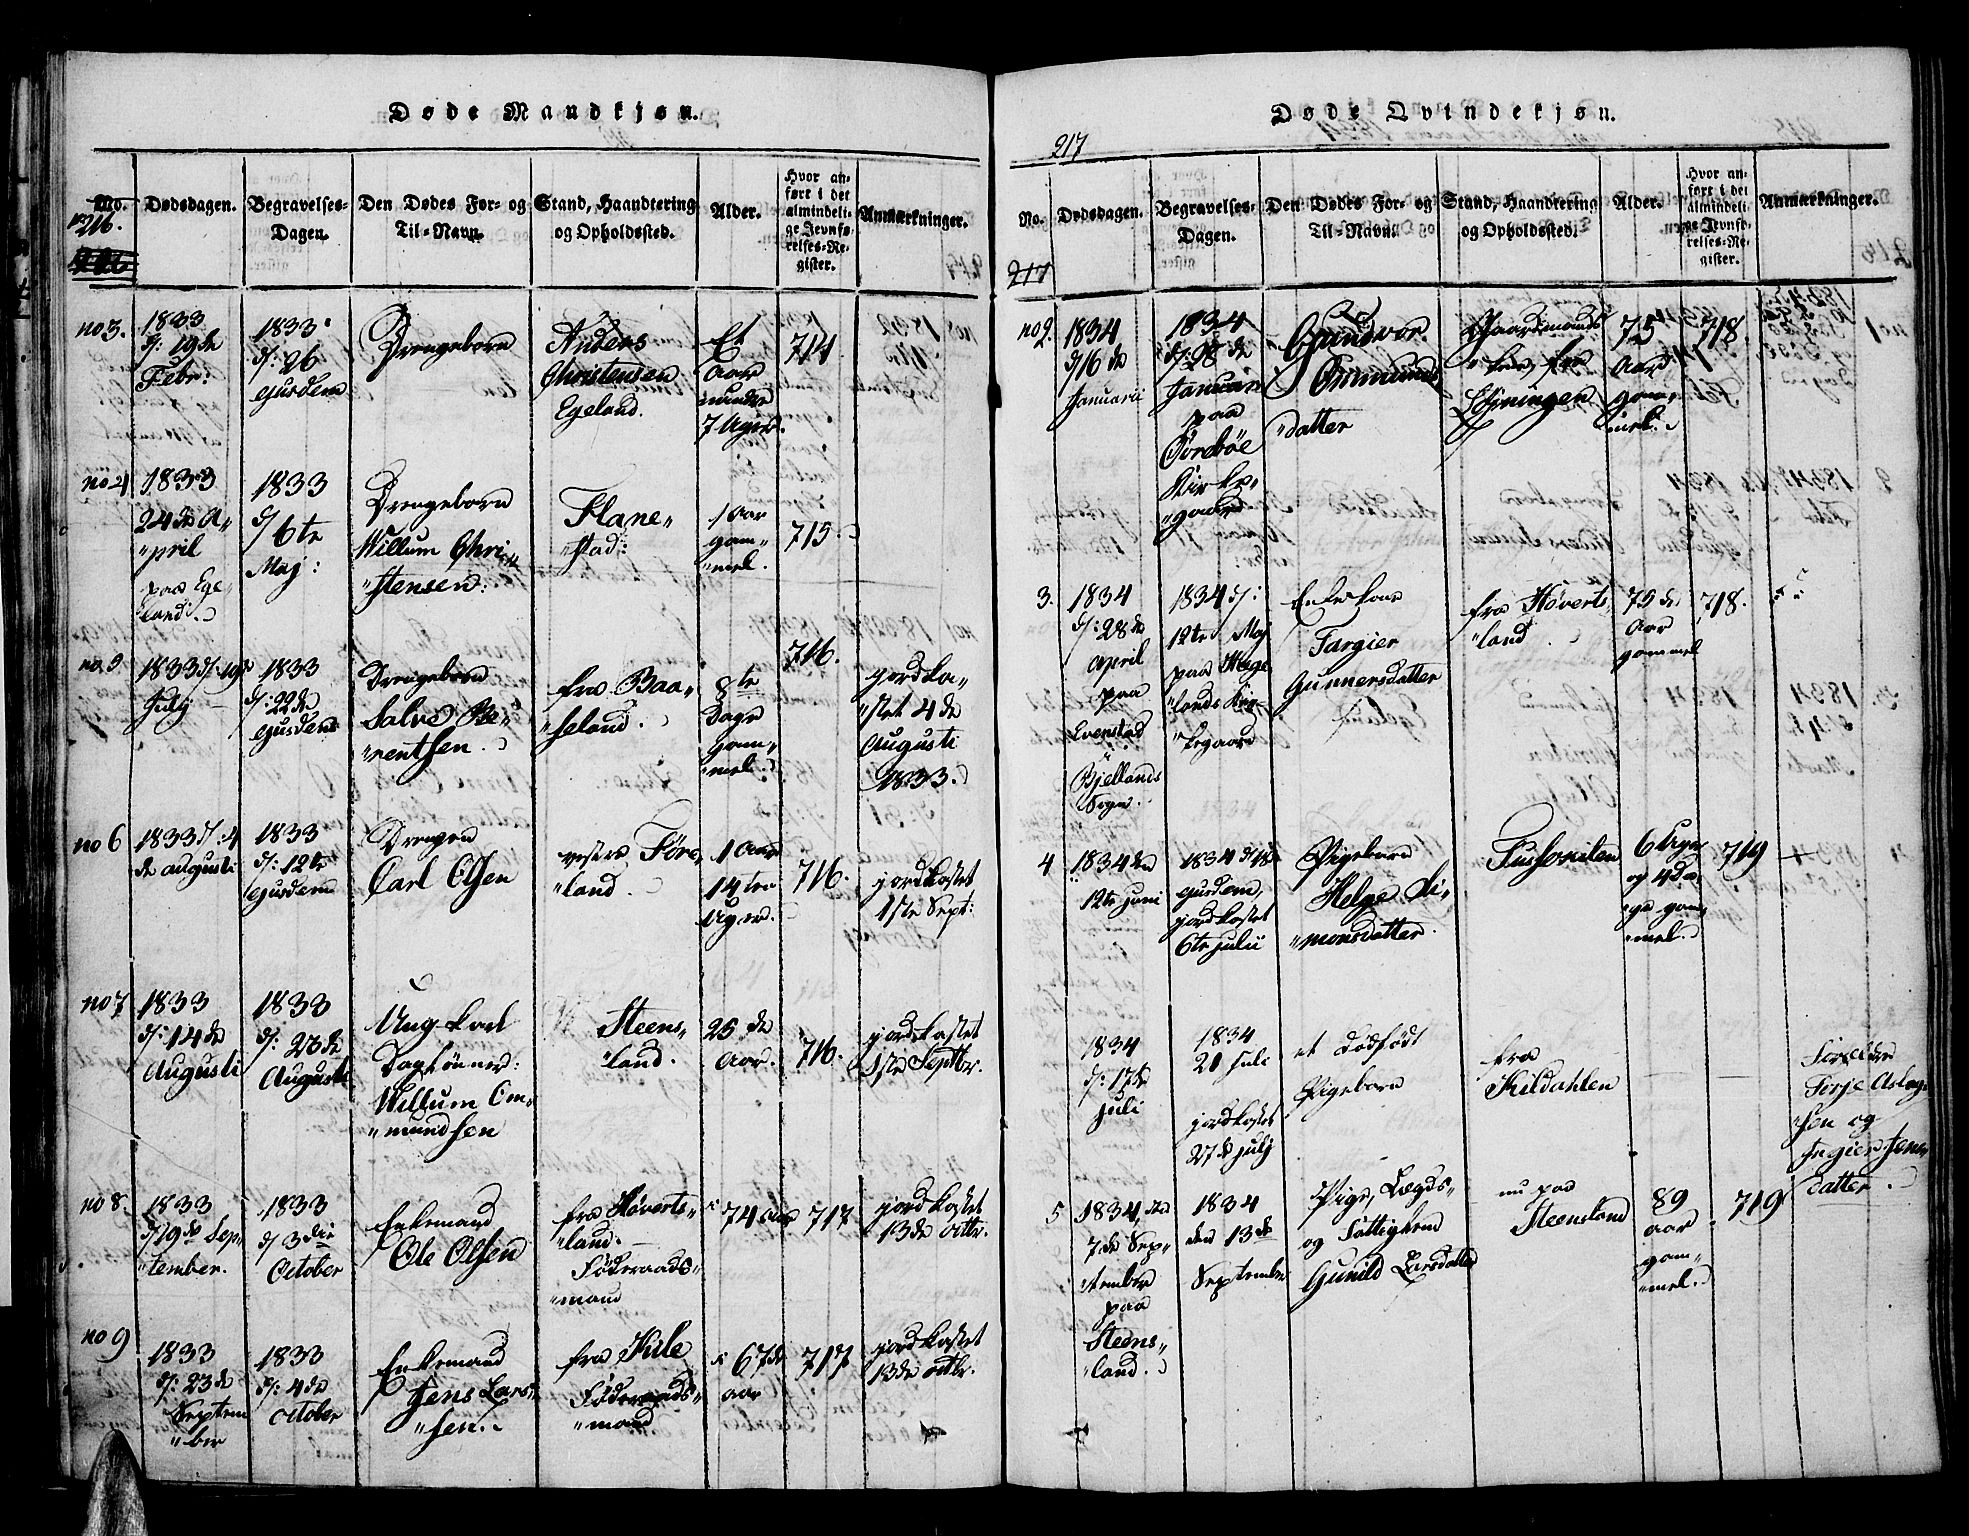 Døde Mandkjøn.
No. 216.
Dødsdagen.
Begravelses-
Dagen.
Den Dødes For- og
Til-Navn.
Stand, Haandtering
og Opholdssted.
Alder.
Hvor an-
ført i det
almindeli-
ge Jevnfø-
relses-Re-
gister.
Anmærkninger.
no 3.
1833
d: 19de
Febr:
1833
d: 26
ejusdem
Drengebarn
Anders
Christensen
Egeland.
Et
Aar
mindre
7 Uger.
714
no 4
1833
24de A-
"pril
paa Ege-
land.
1833
d/ 6te
Maj:
Drengebarn
Willum Chri-
"stensen:
Flane-
"stad:
1 Aar
gam-
"mel.
715.
no 5
1833 d: 19de
July
1833
d: 22de
ejusdem
Drengebarn
Salve Be-
"rentsen.
fra Baa-
"seland.
8te
Dage
gam-
"mel.
716.
jordka-
"stet 4de
Augusti
1833.
no 6
1833 d: 4
de augusti
1833
d: 12te
ejusdem
Drengen
Carl Olsen
vestre Føre-
"land.
1 Aar
14ten
Uger.
716.
jordkastet
1ste Sept:
no 7
1833
d: 14de
Augusti
1833
d: 23de
Augusti
Ung Karl
Dagl ønner:
Willum Om-
"mundsen
Steens-
"land.
25de
Aar.
716.
jordkastet
1ste Septbr.
no 8.
1833
d/ 19de Sep-
"tember.
1833
d/ 3die
October
Enkemand
Ole Olsen
fra Høverts-
"land.
Føderaads-
"mand
74 Aar
717
jordkastet
13de octbr.
no 9
1833
d: 23de
Septem
"ber
1833
d: 4de
October
Enkemand
Jens Lars-
"sen.
fra Kule
Føderaads-
"mand
67de
aar
717
jordkastet
13de octbr.
217
Døde Qvindekjøn.
No.
217
Dødsdagen.
Begravelses-
Dagen.
Den Dødes For- og
Til-Navn.
Stand, Haandtering
og Opholdssted.
Alder.
Hvor an-
ført i det
almindeli-
ge Jevnfø-
relses-Re-
gister.
Anmærkninger.
no 2.
1834
d/ 16de
Januarii
1834
d: 28de
Januarii
paa
Kirke-
"gaard
Gundvor
Ommunds
"datter
Gaardmands
75
Aar
gam-
"mel.
718.
3.
1834
d: 28de
april
paa
Evenstad
i
Bjellands
Sogn.
1834 d:
12te Maj
paa Høge
"lands Kir-
"kegaard
Enkekone
Targier
Gunnersdatter
fra Høverts
"land.
75de
Aar
gammel
718.
4
1834 den
12te juni
1834 d/18de
ejusdem,
jordkastet
6te julii
Pigebarn
Helge Si-
"monsdatter.
6 Uger
og 4 da-
"ge gam-
"mel.
719
1834
d: 17de
juli
1834
21 juli
jordkastet
27de july
et dødfødt
Pigebarn
fra
Kildahlen
Forældre
Terje Aslag-
"sen og
Ingier Jens-
datter.
5
1834, den
7de Sep-
"tember
paa
Steens-
"land.
1834
den 13de
September
Pige, Lægds-
og Fattiglem
Gunild Larsdatter
nu paa
Steensland
89
aar
gam-
"mel.
719